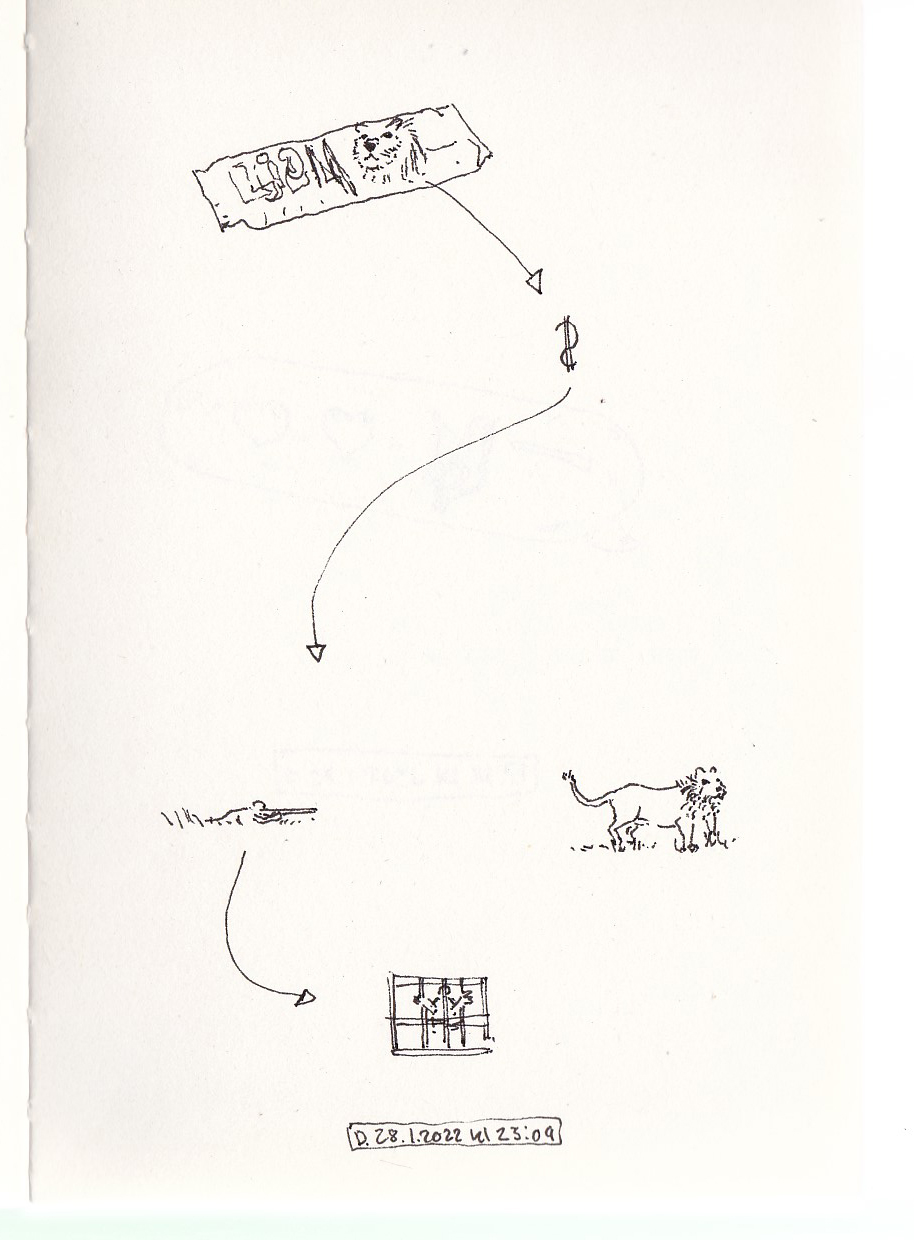 LION
$
D. 28.1.2022 kl 23:09